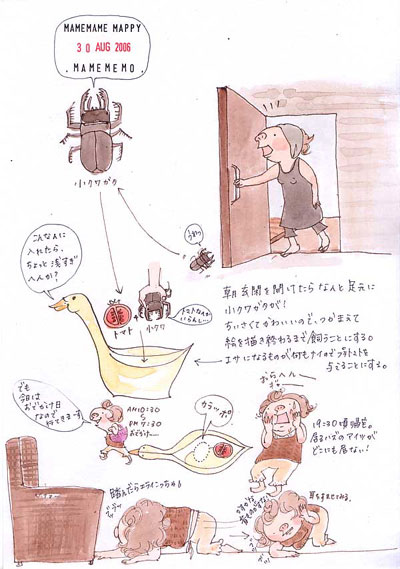 MAMEMAME MAPPY
30 AUG 2006
.MAMEMEMO.
小クワガタ
こんなんに
入れたら、
ちょっと浅すぎ
へんか？
トマト
小クワ
トマトなんか
いらんし…
朝玄関を開けたらなんと足元に
小クワガタが！
ちいさくてかわいいので、つかまえて
絵を描き終わるまで飼うことにする。
エサになるものが何もナイのでプチトマトを
与えることにする。
でも
今日は
おでかけ日
なので
行てきます
AM10:30
PM7:30
おそうじ
カラッポ
おらへんー
ギャー
19:30頃帰宅。
居るハズのアイツが
どこにも居ない！
踏んだらエライこっちゃ！
耳をすませてみる。